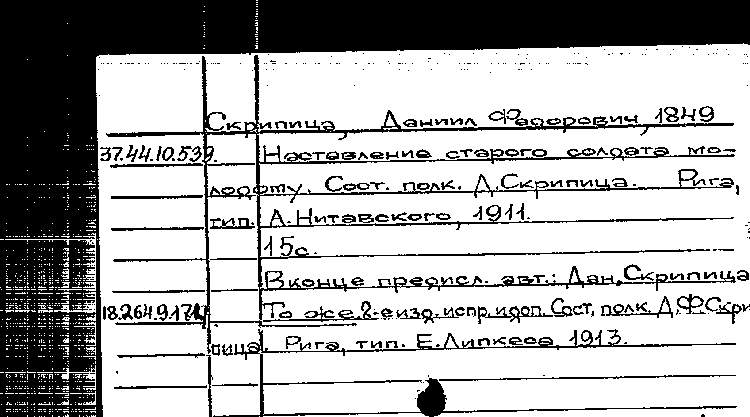 Скрипица, Даниил Федорович, 1849
37.44.10.539. Наставление старого солдата мо-
лодому. Сост. полк. Д.Скрипица. Рига,
тип. А.Нитавского, 1911.
15с.
В конце предисл. авт.: Дан.Скрипица
18.264.9.171 То же 2-е изд. испр. и доп. Сост. полк. Д.Ф.Скри
пица. Рига, тип. Е.Липкеса, 1913.